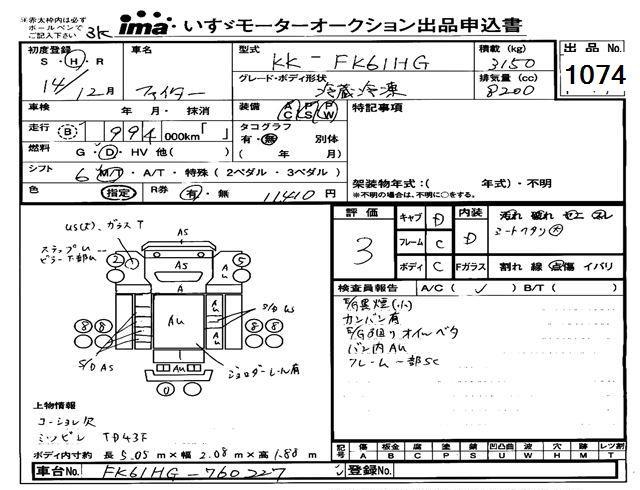 ※赤太枠内は必ず
ボールペンで
ご記入下さい
3K
ima いすゞモーターオークション出品申込書
初度登録
S・H・R
14/12月
車名
ファイター
型式
KK-FK61HG
積載 (kg)
3150
グレード・ボディ形状
冷蔵冷凍
排気量 (cc)
8200
出品No.
1074
車検 年 月・抹消
装備 AC PS PW
特記事項
走行 B 994 000km「 」
タコグラフ
有・無 別体
( 年 月)
燃料 G・D・HV 他( )
シフト 6 M/T・A/T・特殊(2ペダル・3ペダル)
架装物年式:( 年式)・不明
※不明の場合は、不明に○をする。
色 指定 R券 有・無 11410円
評価
3
キャブ D
フレーム C
ボディ C
内装 D
汚れ 破れ セニ ヌレ
シートフタリ 大
Fガラス 割れ 線 点傷 イバリ
検査員報告 A/C( ✓ ) B/T( )
E/G異煙(小)
カンバン有
E/G廻り オイルベタ
バン内AU
フレーム一部SC
US(ズ)、ガラスT
ステップU
ピラー下部U
AS
AS
A
AU
AU
2
5
AU
AU
AU
S/D US
8
8
8
8
S/D AS
AU
ジョロダーレール有
0
上物情報
コーション欠
ミツビシ TD43F
ボディ内寸約 長 5.05 m×幅 2.08 m×高 1.88 m
記号
傷 A
板金 B
腐 C
塗 P
錆 S
凹凸曲 U
波 W
穴 H
跡 M
レツ割 T
車台No. FK61HG-760227
登録No.